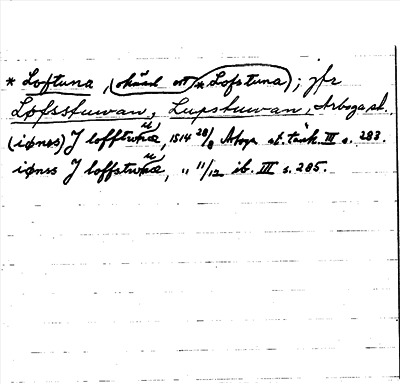 * Loftuna, (okänd ort * Lofstuna); jfr
Lofsstuwan, Lupstuwan, Arboga sk.
(iønss) J lofftwna, 1514 28/8 Arboga st. tänk. III s. 283.
iønss J loffstwna, " 11/12 ib. III s. 285.